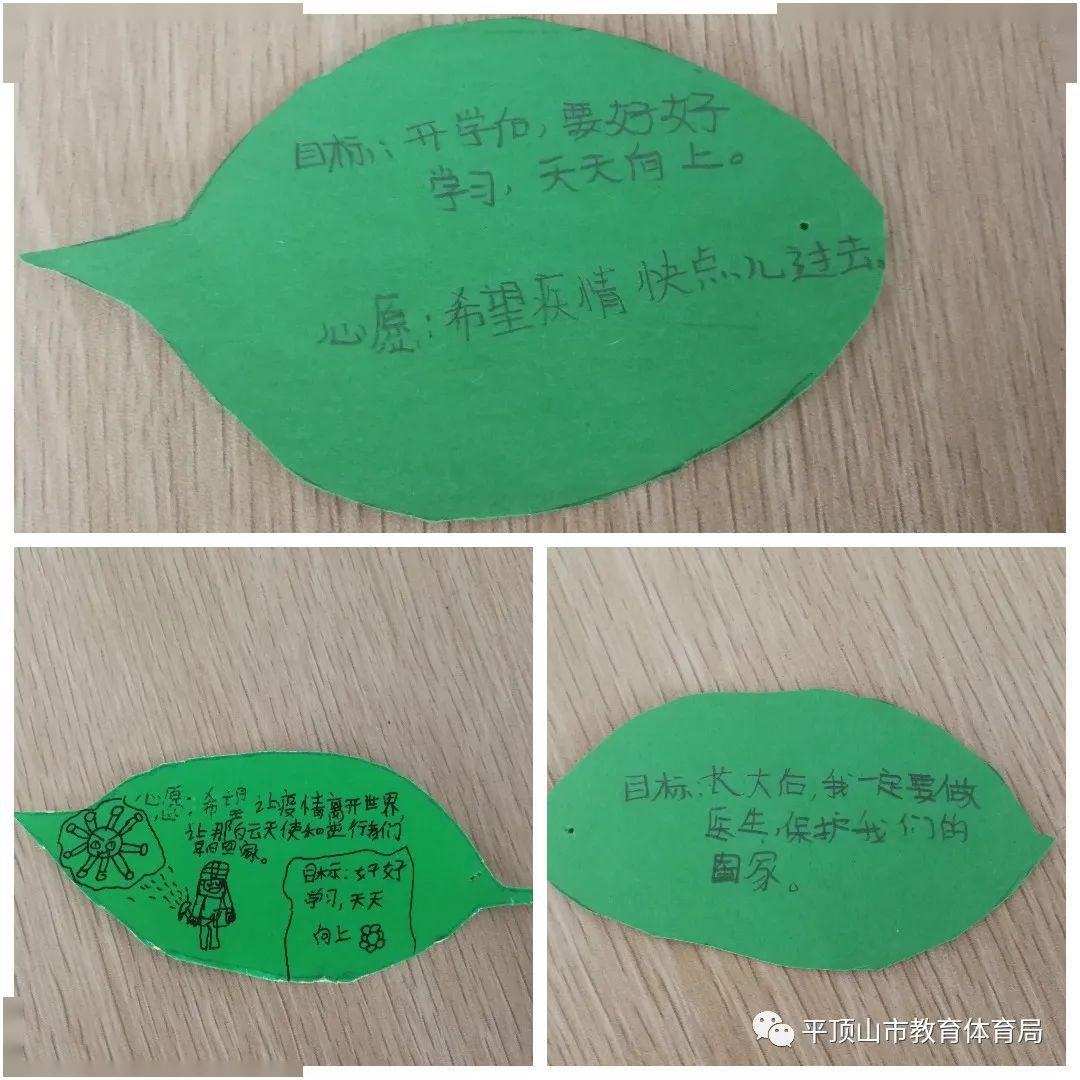 目标：开学后，要好好
学习，天天向上。
心愿：希望疫情快点儿过去。
心愿：希望让疫情离开世界，
让那白云天使和逆行者们
早日回家。
目标：好好
学习，天天
向上
目标：长大后，我一定要做
医生，保护我们的
国家。
平顶山市教育体育局